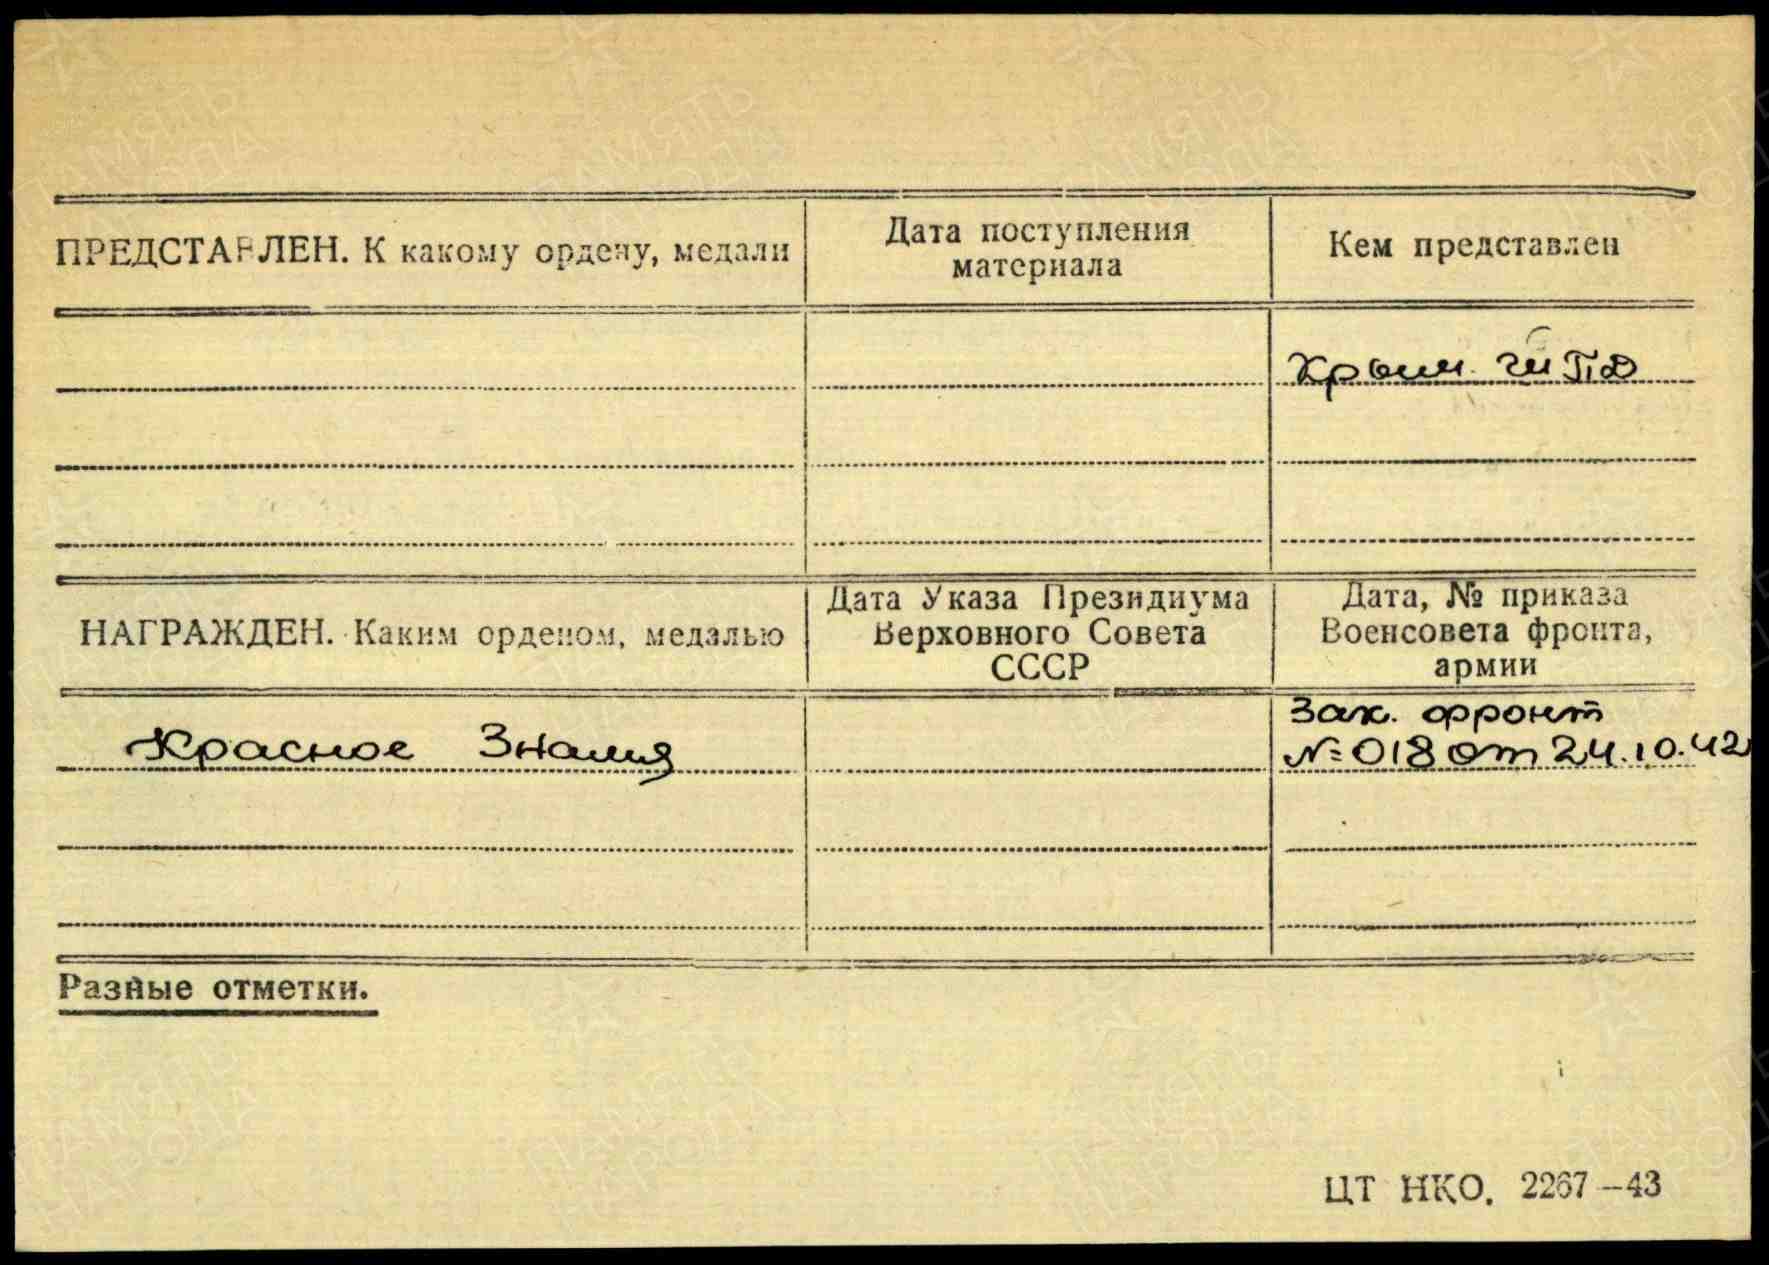 ПРЕДСТАВЛЕН. К какому ордену, медали
Дата поступления
материала
Кем представлен
Крым. ШПД
НАГРАЖДЕН. Каким орденом, медалью
Дата Указа Президиума
Верховного Совета
СССР
Дата, № приказа
Военсовета фронта,
армии
Красное Знамя
Зак. фронт
№ 018 от 24.10.42
Разные отметки.
ЦТ НКО. 2267—43
ПАМЯТЬ
НАРОДА